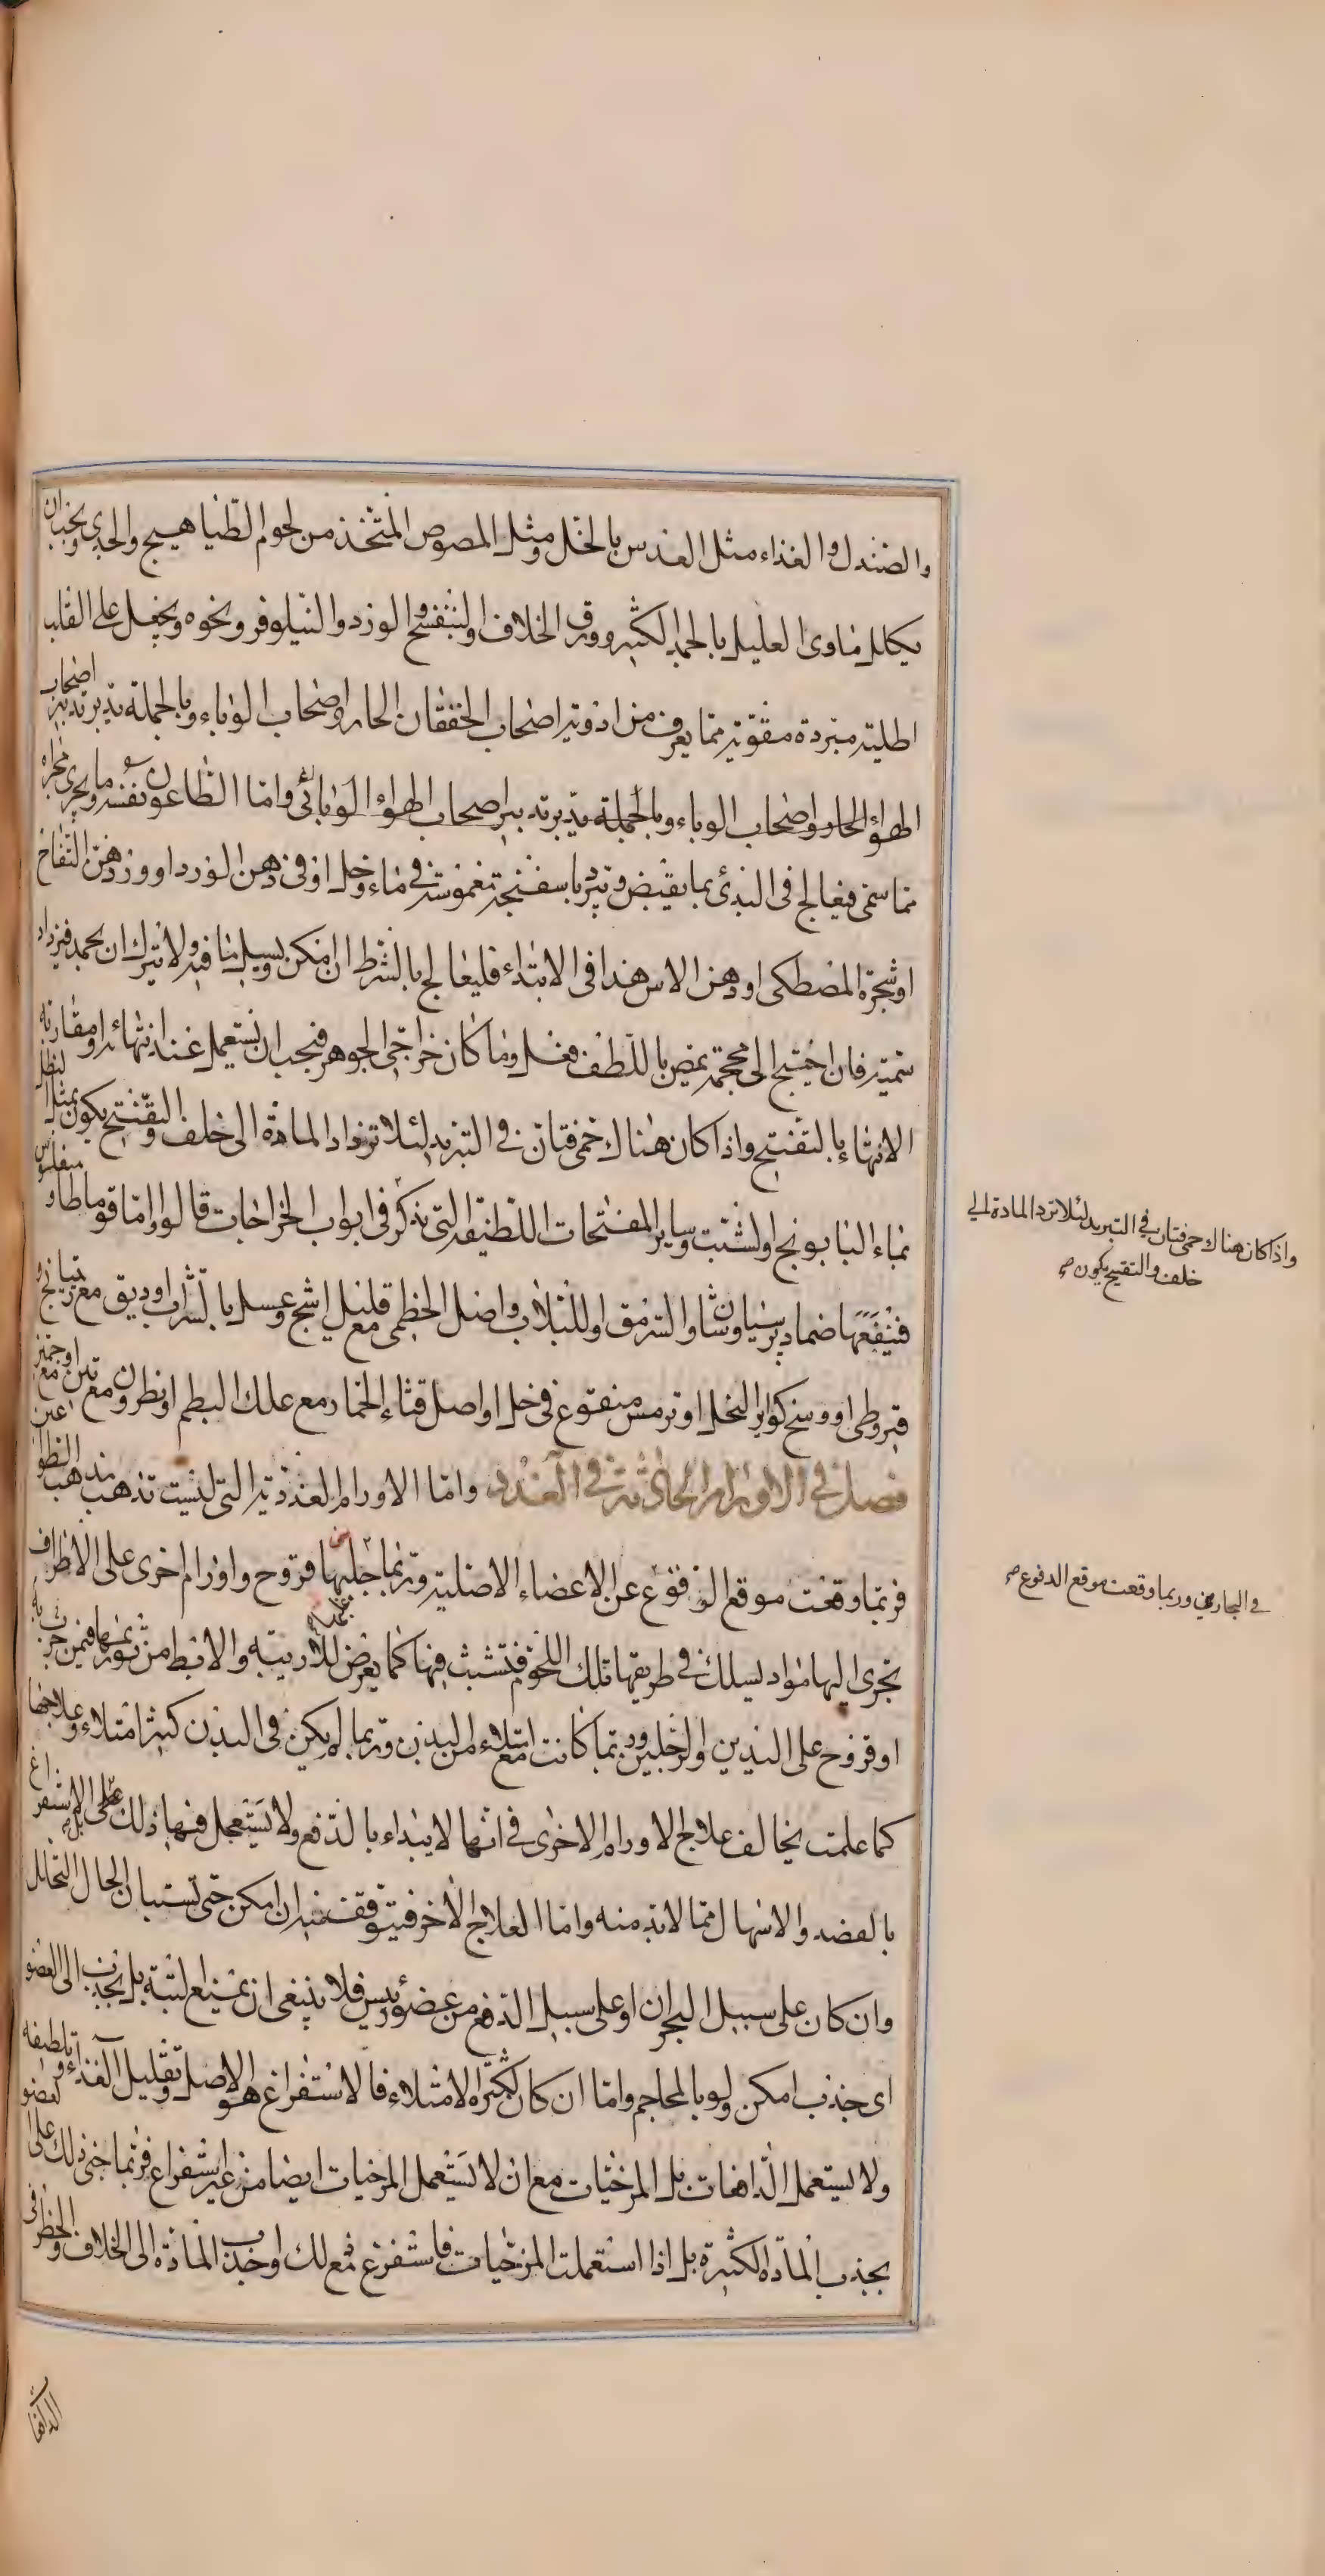 والصندل والغذاء مثل العدس بالخل ومثل المصوص المتخذ من لحوم الطياهيج والجدي ويجب ان
يكلل ماوى العليل بالجمد الكثير وورق الخلاف والبنفسج والورد والنيلوفر ونحوه ويجعل على القلب
اطلية مبردة مقوية مما يعرف من ادوية اصحاب الخفقان الحار واصحاب الوباء وبالجملة يدبر تدبير اصحاب
الهواء الحار واصحاب الوباء وبالجملة يدبر تدبير اصحاب الهواء الوبائى واما الطاعون نفسه وما يجرى مجراه
مما سمى فيعالج فى البدئ بما يقبض ويبرد باسفنجة مغموسة فى ماء وخل او فى دهن الورد او دهن التفاح
او شجرة المصطكى او دهن الاس هذا فى الابتداء فليعالج بالشرط ان امكن ويسيل ما فيه ولا يترك ان يجمد فيزداد
سمية فان احتيج الى محجمة تمص باللطف فعل وما كان خراجى الجوهر فيجب ان يستعمل عند انتهائه او مقاربة
الانتهاء بالتفتيح واذا كان هناك حمى فتان فى التبريد لئلا تزداد المادة الى خلف والتفتيح يكون بمثل لنطل
بماء البابونج والشبت وساير المفتحات اللطيفة التى تذكر فى ابواب الخراجات قالوا واما قوماطا و
فينفعها ضماد برسياوشان والسرمق واللبلاب واصل الخطمى مع قليل اشج وعسل بالشراب او دبق مع ريتيانج و
قيروطى او وسخ كواير النحل او ترمس منقوع فى خل او اصل قثاء الحمار مع علك البطم او نطرون مع تين
فصل فى الاورام الحادثة فى الغدد واما الاورام الغددية التى ليست تذهب مذهب الطواعين
فربما وقعت موقع الدفوع عن الاعضاء الاصلية وربما جلبها قروح واورام اخرى على الاطراف
تجرى اليها مواد يسلك فى طريقها تلك اللحوم فتشبث فيها كما يعرض للاربية والابط من تورمها فيمن به جرب
او قروح على اليدين والرجلين وربما كانت مع امتلاء من البدن وربما لم يكن فى البدن كثير امتلاء وعلاجها
كما علمت يخالف علاج الاورام الاخرى فى انها لا يبتداء بالدفع ولا يستعجل فيها ذلك بل الاستفراغ
بالفصد والاسهال مما لابد منه واما العلاج الاخر فيتوقف فيه ان امكن حتى تستبان الحال التحلل
وان كان على سبيل البحران او على سبيل الدفع من عضو رئيس فلا ينبغى ان يمنع البتة بل يجذب الى العضو
اى جذب امكن ولو بالمحاجم واما ان كان لكثرة الامتلاء فالاستفراغ هو الاصل وتقليل الغذاء وتلطيفه
ولا يستعمل الدافعات بل المرخيات مع ان لا يستعمل المرخيات ايضا من غير استفراغ فربما جنى ذلك على العضو
بجذب المادة الكثيرة بل اذا استعملت المرخيات فاستفرغ مع ذلك او جذب المادة الى الخلاف والخطر فى
واذا كان هناك حمى فتان فى التبريد لئلا ترد المادة الى
خلف والتقيح يكون صح
فى البحارين وربما وقعت موقع الدفوع صح
الدافعات